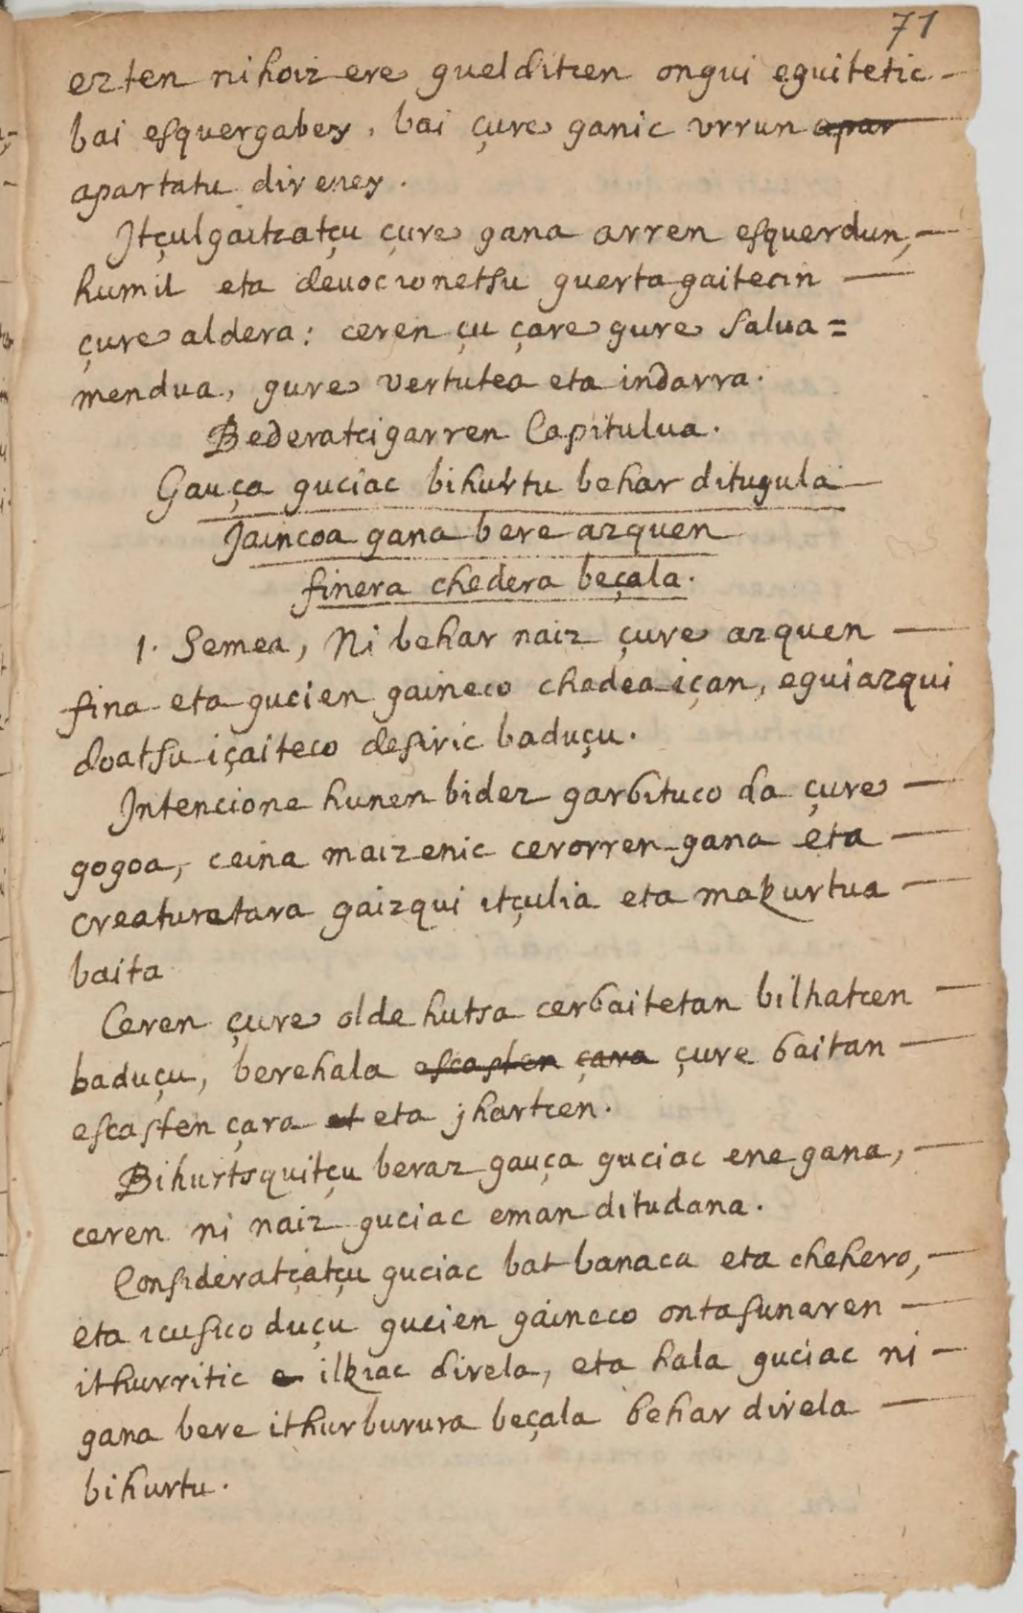 71
ezten nihoiz ere guelditcen ongui eguitetic —
bai esquergabey, bai çure ganic vrrun apar
apartatu direney.
Itçulgaitzatçu çure gana arren esquerdun, —
humil eta deuocionetsu guertagaitecin —
çure aldera: ceren çu çare gure salua =
mendua, gure vertutea eta indarra.
Bederatcigarren Capitulua.
Gauça guciac bihurtu behar ditugula
Jaincoa gana bere azquen
finera chedera beçala.
1. Semea, Ni behar naiz çure azquen —
fina eta gucien gaineco chedea içan, eguiazqui
doatsu içaiteco desiric baduçu.
Intencione hunen bidez garbituco da çure —
gogoa, ceina maizenic cerorren gana eta —
creaturetara gaizqui itçulia eta makurtua —
baita
Ceren çure olde hutsa cerbaitetan bilhatcen —
baduçu, berehala escasten çara çure baitan —
escasten çara et eta jhartcen.
Bihurtsquitçu beraz gauça guciac ene gana, —
ceren ni naiz guciac eman ditudana.
Consideratçatçu guciac bat banaca eta chehero, —
eta icusico duçu gucien gaineco ontasunaren —
ithurritic e ilkiac direla, eta hala guciac ni —
gana bere ithurburura beçala behar direla —
bihurtu.